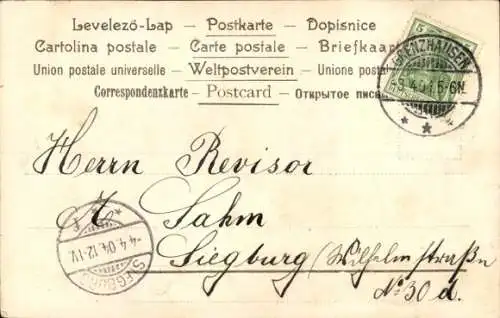 Levelező-Lap — Postkarte — Dopisnice
Cartolina postale — Carte postale — Briefkaar
Union postale universelle — Weltpostverein — Unione postal
Correspondenzkarte — Postcard — Открытое писа
5
GRENZHAUSEN
Herrn Revisor
Sahm
Siegburg (Wilhelmstraße
No 30 d.
SIEGBURG
-4 4 04. 12-1V.